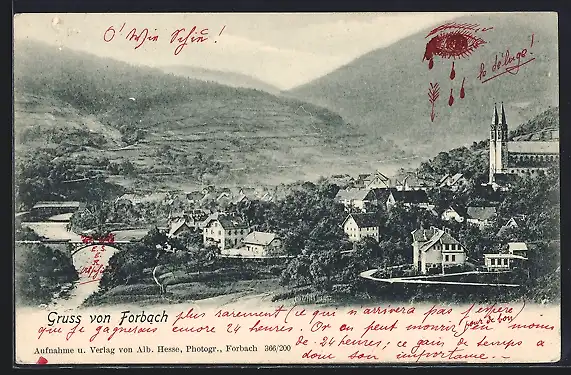 O! Wie Schön!
le déluge!
Gruss von Forbach
plus rarement (ce qui n'arrivera pas j'espère
que je gagnerais encore 24 heures. Or on peut mourir en moins
(pour de bon)
Aufnahme u. Verlag von Alb. Hesse, Photogr., Forbach 366/200
de 24 heures; ce gain de temps a
donc son importance.